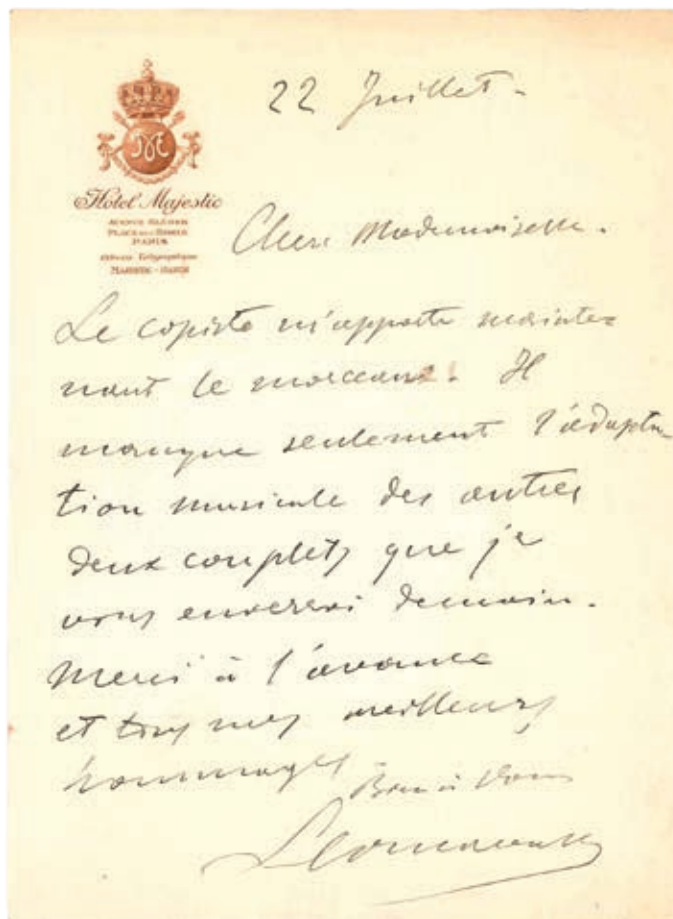 22 Juillet.
Hotel Majestic
AVENUE KLÉBER
PARIS
Adresse Télégraphique
MAJESTIC - PARIS
Chere Mademoiselle.
Le copiste m'apporte mainte
nant le morceau. Il
manque seulement l'adapta
tion musicale des autres
deux couplets que je
vous enverrai demain.
Merci à l'avance
et tous mes meilleurs
hommages
Bien à Vous
Leoncavallo